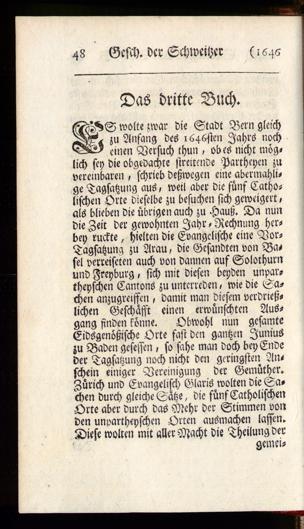 48 Gesch. der Schweitzer (1646
Das dritte Buch.
ES wolte zwar die Stadt Bern gleich
zu Anfang des 1646sten Jahrs noch
einen Versuch thun, ob es nicht mög-
lich sey die obgedachte streitende Partheyen zu
vereinbaren, schrieb deßwegen eine abermahli-
ge Tagsatzung aus, weil aber die fünf Catho-
lischen Orte dieselbe zu besuchen sich geweigert,
als blieben die übrigen auch zu Hauß. Da nun
die Zeit der gewohnten Jahr-Rechnung her-
bey ruckte, hielten die Evangelische eine Vor-
Tagsatzung zu Arau, die Gesandten von Ba-
sel verreiseten auch von dannen auf Solothurn
und Freyburg, sich mit diesen beyden unpar-
theyschen Cantons zu unterreden, wie die Sa-
chen anzugreiffen, damit man diesem verdrieß-
lichen Geschäfft einen erwünschten Aus-
gang finden könne. Obwohl nun gesamte
Eidsgenößische Orte fast den gantzen Junius
zu Baden gesessen, so sahe man doch bey Ende
der Tagsatzung noch nicht den geringsten An-
schein einiger Vereinigung der Gemüther.
Zürich und Evangelisch Glaris wolten die Sa-
chen durch gleiche Sätze, die fünf Catholischen
Orte aber durch das Mehr der Stimmen von
den unpartheyschen Orten ausmachen lassen.
Diese wolten mit aller Macht die Theilung der
gemei-